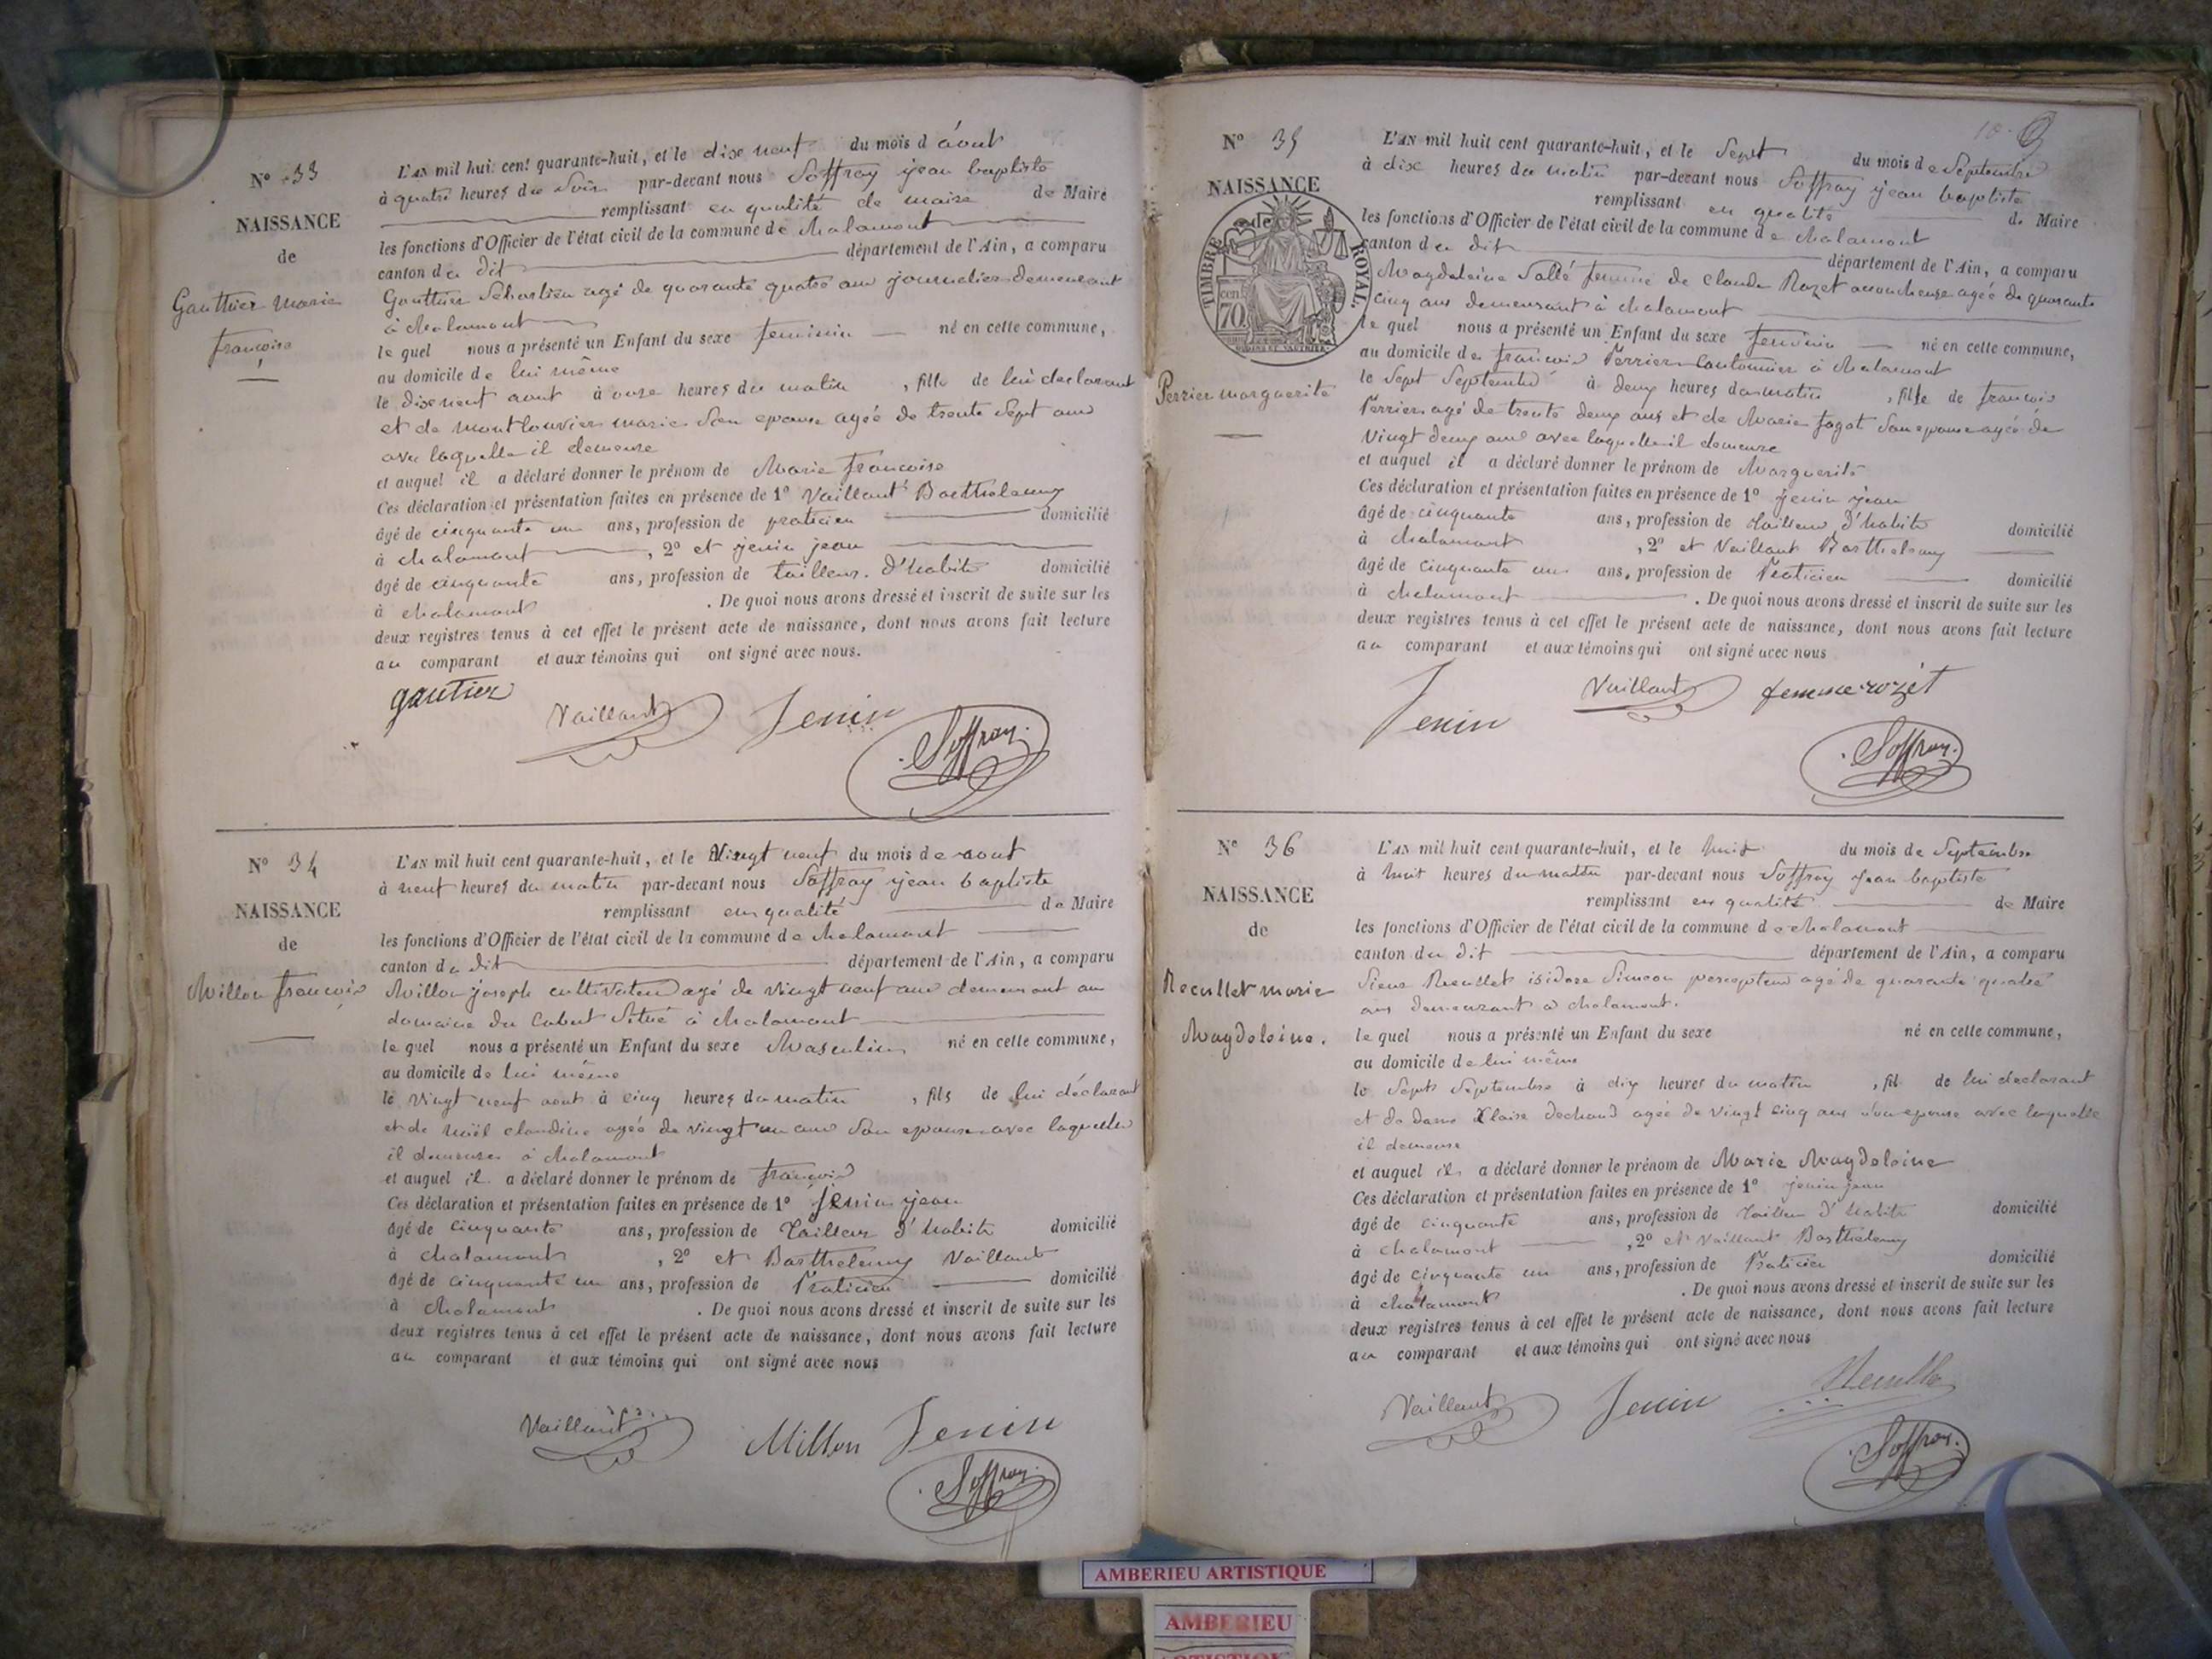 N° 33
NAISSANCE
de
Gauthier marie
francoise
L'AN mil huit cent quarante-huit, et le dixe neuf du mois d août
à quatre heures du Soir par-devant nous Soffray jean baptiste
remplissant en qualité de maire de Maire
les fonctions d'Officier de l'état civil de la commune de chalamont
canton du dit département de l'Ain, a comparu
Gauthier Sébastien agé de quarante quatre ans journalier demeurant
à chalamont
le quel nous a présenté un Enfant du sexe feminin né en cette commune,
au domicile de lui même
le dixe neuf aout à onze heures du matin , fille de lui declarant
et de montlouvier marie son epouse agée de trente Sept ans
avec laquelle il demeure
et auquel il a déclaré donner le prénom de Marie francoise
Ces déclaration et présentation faites en présence de 1° Vaillant Barthelemy
âgé de cinquante un ans, profession de praticien domicilié
à chalamont , 2° et jenin jean
âgé de cinquante ans, profession de tailleur d'habits domicilié
à chalamont . De quoi nous avons dressé et inscrit de suite sur les
deux registres tenus à cet effet le présent acte de naissance, dont nous avons fait lecture
au comparant et aux témoins qui ont signé avec nous.
gautier
Vaillant Jenin
Soffray
N° 34
NAISSANCE
de
Millon francois
L'AN mil huit cent quarante-huit, et le Vingt neuf du mois de aout
à neuf heures du matin par-devant nous Soffray jean baptiste
remplissant en qualité de Maire
les fonctions d'Officier de l'état civil de la commune de chalamont
canton du dit département de l'Ain, a comparu
Millon joseph cultivateur agé de Vingt neuf ans demeurant au
domaine du Situé à chalamont
le quel nous a présenté un Enfant du sexe Masculin né en cette commune,
au domicile de lui même
le Vingt neuf aout à cinq heures du matin , fils de lui déclarant
et de Noël claudine agée de vingt un ans Son epouse avec laquelle
il demeure à chalamont
et auquel il a déclaré donner le prénom de francois
Ces déclaration et présentation faites en présence de 1° Jenin jean
âgé de cinquante ans, profession de Tailleur d'habits domicilié
à chalamont , 2° et Barthelemy Vaillant
âgé de cinquante un ans, profession de Praticien domicilié
à chalamont . De quoi nous avons dressé et inscrit de suite sur les
deux registres tenus à cet effet le présent acte de naissance, dont nous avons fait lecture
au comparant et aux témoins qui ont signé avec nous
Vaillant Millon Jenin
Soffray
10
N° 35
NAISSANCE
de
TIMBRE ROYAL
70
Perrier marguerite
L'AN mil huit cent quarante-huit, et le Sept du mois de Septembre
à dix heures du matin par-devant nous Soffray jean baptiste
remplissant en qualité de Maire
les fonctions d'Officier de l'état civil de la commune de chalamont
canton du dit département de l'Ain, a comparu
Magdeleine Sallé femme de Claude Rozet accoucheuse agée de quarante
cinq ans demeurant à chalamont
le quel nous a présenté un Enfant du sexe feminin né en cette commune,
au domicile de francois Perrier Cantonnier à chalamont
le Sept Septembre à deux heures du matin , fille de francois
Perrier agé de trente deux ans et de Marie fagot Son epouse agée de
Vingt deux ans avec laquelle il demeure
et auquel il a déclaré donner le prénom de Marguerite
Ces déclaration et présentation faites en présence de 1° jenin jean
âgé de cinquante ans, profession de Tailleur d'habits domicilié
à chalamont , 2° et Vaillant Barthelemy
âgé de cinquante un ans, profession de Praticien domicilié
à chalamont . De quoi nous avons dressé et inscrit de suite sur les
deux registres tenus à cet effet le présent acte de naissance, dont nous avons fait lecture
au comparant et aux témoins qui ont signé avec nous
Jenin Vaillant femme rozet
Soffray
N° 36
NAISSANCE
de
Recullet marie
Magdeleine.
L'AN mil huit cent quarante-huit, et le huit du mois de Septembre
à huit heures du matin par-devant nous Soffray jean baptiste
remplissant en qualité de Maire
les fonctions d'Officier de l'état civil de la commune de chalamont
canton du dit département de l'Ain, a comparu
Sieur Recullet isidore Simeon percepteur agé de quarante quatre
ans demeurant à chalamont.
le quel nous a présenté un Enfant du sexe né en cette commune,
au domicile de lui même
le Sept Septembre à dix heures du matin , fil de lui declarant
et de dame Claire dechaud agée de Vingt cinq ans Son epouse avec laquelle
il demeure
et auquel il a déclaré donner le prénom de Marie Magdeleine
Ces déclaration et présentation faites en présence de 1° jenin jean
âgé de cinquante ans, profession de Tailleur d'habits domicilié
à chalamont , 2° et Vaillant Barthelemy
âgé de cinquante un ans, profession de Praticien domicilié
à chalamont . De quoi nous avons dressé et inscrit de suite sur les
deux registres tenus à cet effet le présent acte de naissance, dont nous avons fait lecture
au comparant et aux témoins qui ont signé avec nous
Vaillant Jenin
Soffray
AMBERIEU ARTISTIQUE
AMBERIEU
ARTISTIQUE